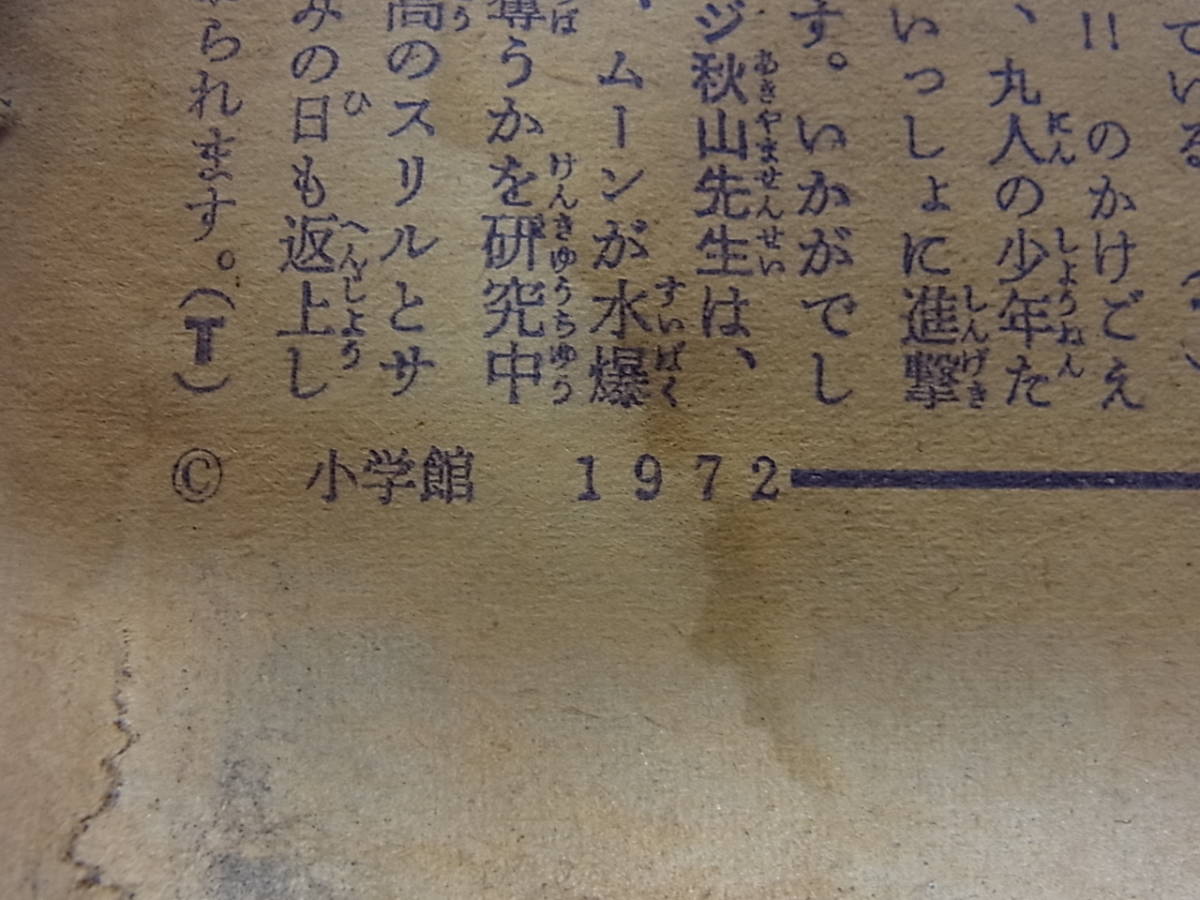 ている
!!のかけごえ
、丸人の少年た
いっしょに進撃
す。いかがでし
ジ秋山先生は、
、ムーンが水爆
奪うかを研究中
高のスリルとサ
みの日も返上し
られます。(T)
© 小学館 1972